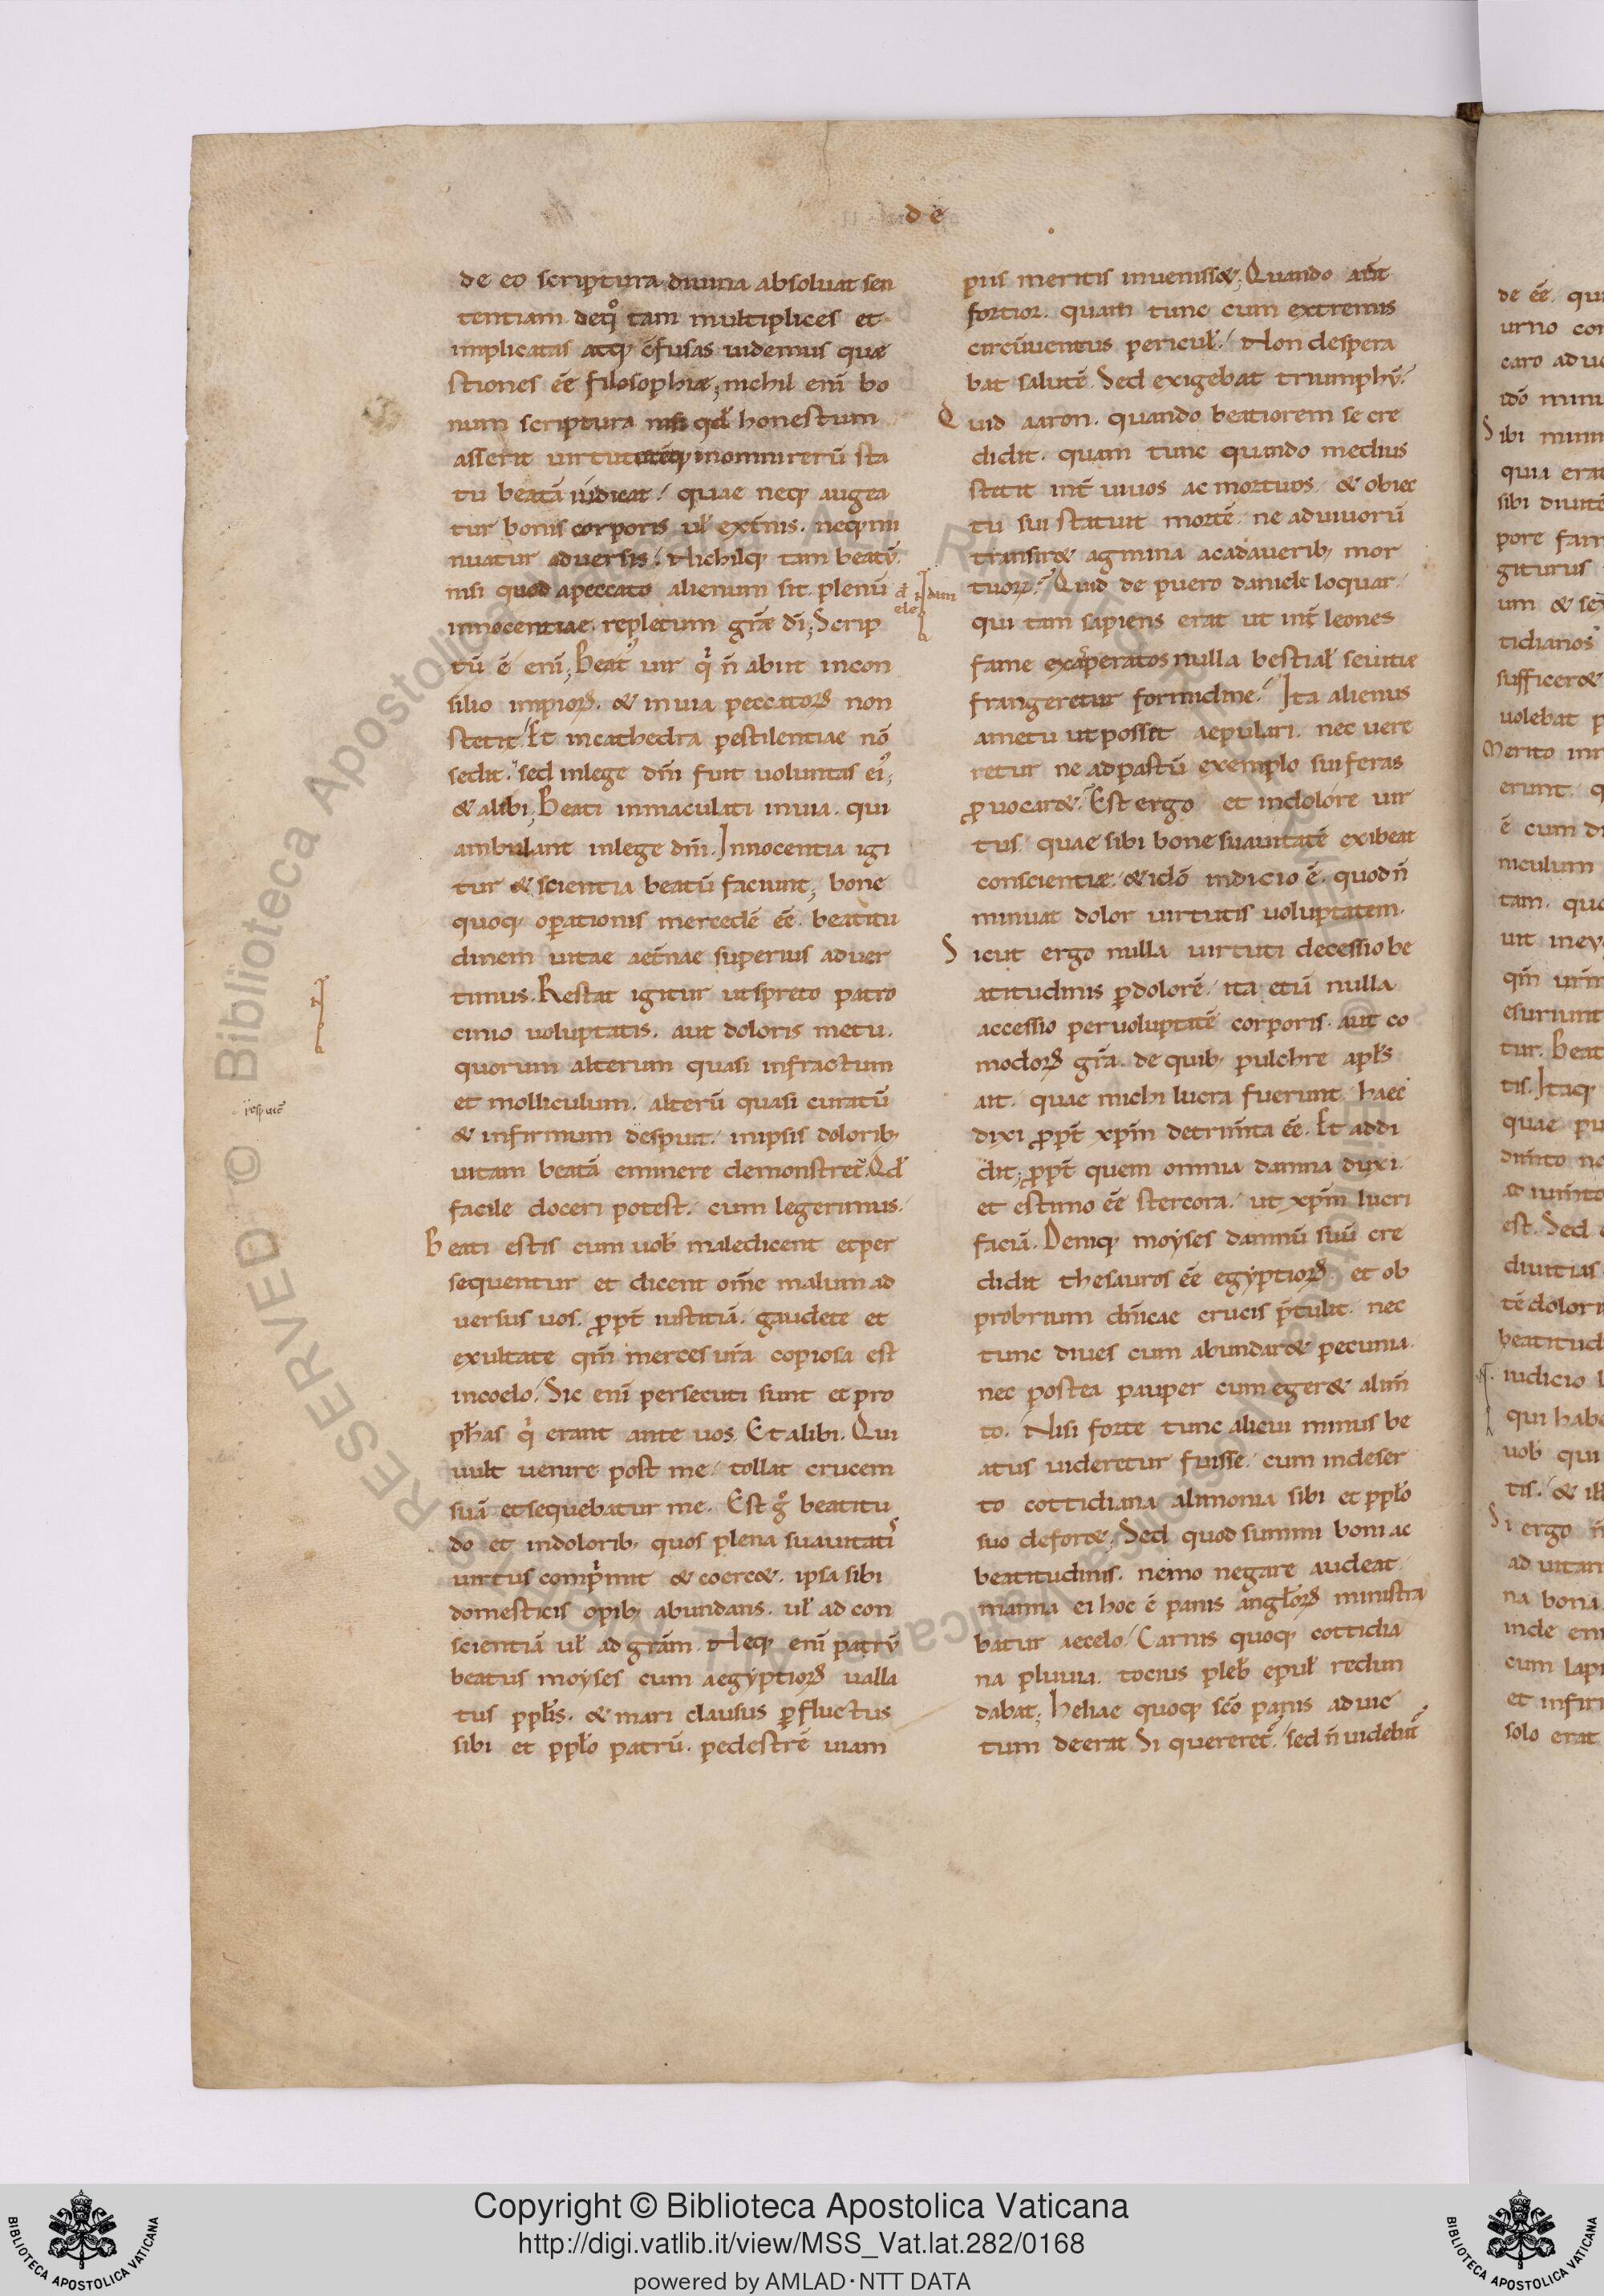 de
de eo scriptura diuina absoluat sen
tentiam. deqͦ tam multiplices et
implicatas atq; c̄fusas uidemus quæ
stiones eē filosophiæ; nichil eni̅ bo
num scriptura nisi qd̅ honestum
asserit uirtutemq; in omni reru̅ sta
tu beata̅ iudicat. quae neq; augea
tur bonis corporis ul̅ ext̅nis. neq; mi
nuatur aduersis. Nichilq; tam beatu̅
nisi quod apeccato alienum sit. plenu̅
innocentiae. repletum gr̅æ dī; Scrip
tu̅ ē eni̅; Beatꝰ uir qͥ n̅ abiit incon
silio impioꝝ. & inuia peccatoꝝ non
stetit. Et incathedra pestilentiae no̅
sedit. sed inlege dn̅i fuit uoluntas eiꝰ;
& alibi; Beati inmaculati inuia. qui
ambulant inlege dn̅i. Innocentia igi
tur & scientia beatu̅ faciunt; bone
quoq; oꝑationis mercede̅ eē. beatitu
dinem uitae aet̅nae superius aduer
timus. Restat igitur ut spreto patro
cinio uoluptatis. aut doloris metu.
quorum alterum quasi infractum
et molliculum. alteru̅ quasi curatu̅
& infirmum despuit. inipsis dolorib;
uitam beata̅ eminere demonstret̅. Qd̅
facile doceri potest. cum legerimus.
Beati estis cum uob̅ maledicent et per
sequentur et dicent om̅e malum ad
uersus uos. ꝓpt̅ iustitia̅. gaudete et
exultate qm̅ merces ur̅a copiosa est
incoelo. Sic eni̅ persecuti sunt et pro
ph̅as qͥ erant ante uos. Et alibi. Qui
uult uenire post me. tollat crucem
sua̅ et sequebatur me. Est gͦ beatitu
do et indolorib; quos plena suauitatis
uirtus comp̍mit & coerc&. ipsa sibi
domesticis opib; abundans. ul̅ ad con
scientia̅ ul̅ ad gra̅m. Neq; eni̅ paru̅
beatus moyses cum aegyptioꝝ ualla
tus ppl̅is. & mari clausus ꝑ fluctus
sibi et ppl̅o patru̅. pedestre̅ uiam
respuit̅
piis meritis inueniss&. Quando aut̅
fortior. quam tunc cum extremis
circu̅uentus pericul̅. Non despera
bat salute̅. Sed exigebat triumphu̅.
Quid aaron. quando beatiorem se cre
didit. quam tunc quando medius
stetit int̅ uiuos ac mortuos. & obiec
tu sui statuit morte̅. ne aduiuoru̅
transir& agmina acadauerib; mor
tuoꝝ. Quid de puero daniele loquar.
qui tam sapiens erat ut int̅ leones
fame exasperatos nulla bestial̅ seuitiæ
frangeretur formidine. Ita alienus
ametu ut posset aepulari. nec uere
retur ne adpastu̅ exemplo sui feras
ꝓuocar&. Est ergo et indolore uir
tus. quae sibi bone suauitate̅ exibeat
conscientiæ. & ido̅ indicio ē. quod n̅
minuat dolor uirtutis uoluptatem.
Sicut ergo nulla uirtuti decessio be
atitudinis ꝑ dolore̅. ita etia̅ nulla
accessio per uoluptate̅ corporis. aut co
modoꝝ gr̅a. de quib; pulchre apl̅s
ait. quae michi lucra fuerunt. haec
dixi ꝓpt̅ xpm̅ detrim̅ta eē. Et addi
dit; ꝓpt̅ quem omnia damna duxi.
et estimo eē stercora. ut xpm̅ lucri
facia̅. Deniq; moyses damnu̅ suu̅ cre
didit thesauros eē egyptioꝝ. et ob
probrium dn̅icae crucis p̅tulit. nec
tunc diues cum abundar& pecunia.
nec postea pauper cum eger& alim̅
to. Nisi forte tunc alicui minus be
atus uideretur fuisse. cum indeser
to cottidiana alimonia sibi et ppl̅o
suo defor&. Sed quod summi boni ac
beatitudinis. nemo negare audeat.
manna ei hoc ē panis angl̅oꝝ ministra
batur aecelo. Carnis quoq; cottidia
na pluuia. tocius pleb̅ epul̅ redun
dabat; heliae quoq; sc̅o panis aduic
tum deerat. Si quereret̅. sed n̅ uidebat̅
Copyright © Biblioteca Apostolica Vaticana
http://digi.vatlib.it/view/MSS_Vat.lat.282/0168
powered by AMLAD·NTT DATA
BIBLIOTECA APOSTOLICA VATICANA
BIBLIOTECA APOSTOLICA VATICANA